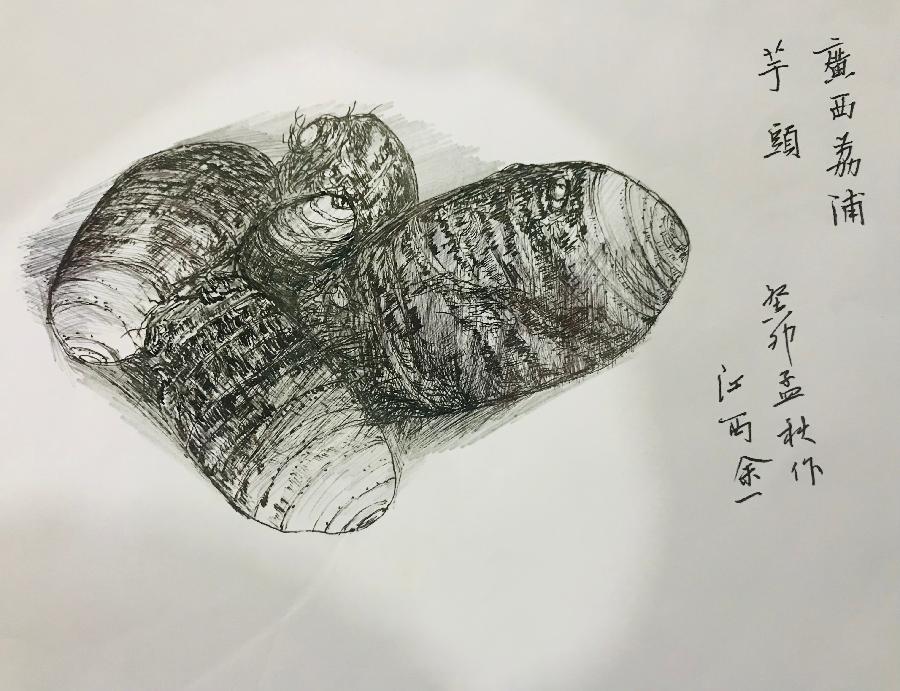 廣西荔浦
芋頭
癸卯孟秋作
江西余一